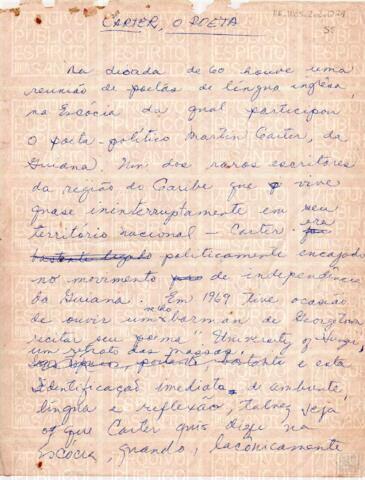 CARTER, O POETA
35
Na década de 60 houve uma
reunião de poetas de língua inglêsa,
na Escócia da qual participou
o poeta-político Martin Carter, da
Guiana. Um dos raros escritores
da região do Caribe que vive
quase ininterruptamente em seu
território nacional — Carter era
bastante ligado politicamente engajado
no movimento de independência
da Guiana. Em 1969 tive ocasião
de ouvir um barman de Georgetown
recitar seu poema "University of Hunger,
um retrato das massas,
bastante e esta
identificação imediata de ambiente,
língua e reflexão, talvez seja
o que Carter quis dizer na
Escócia, quando, laconicamente